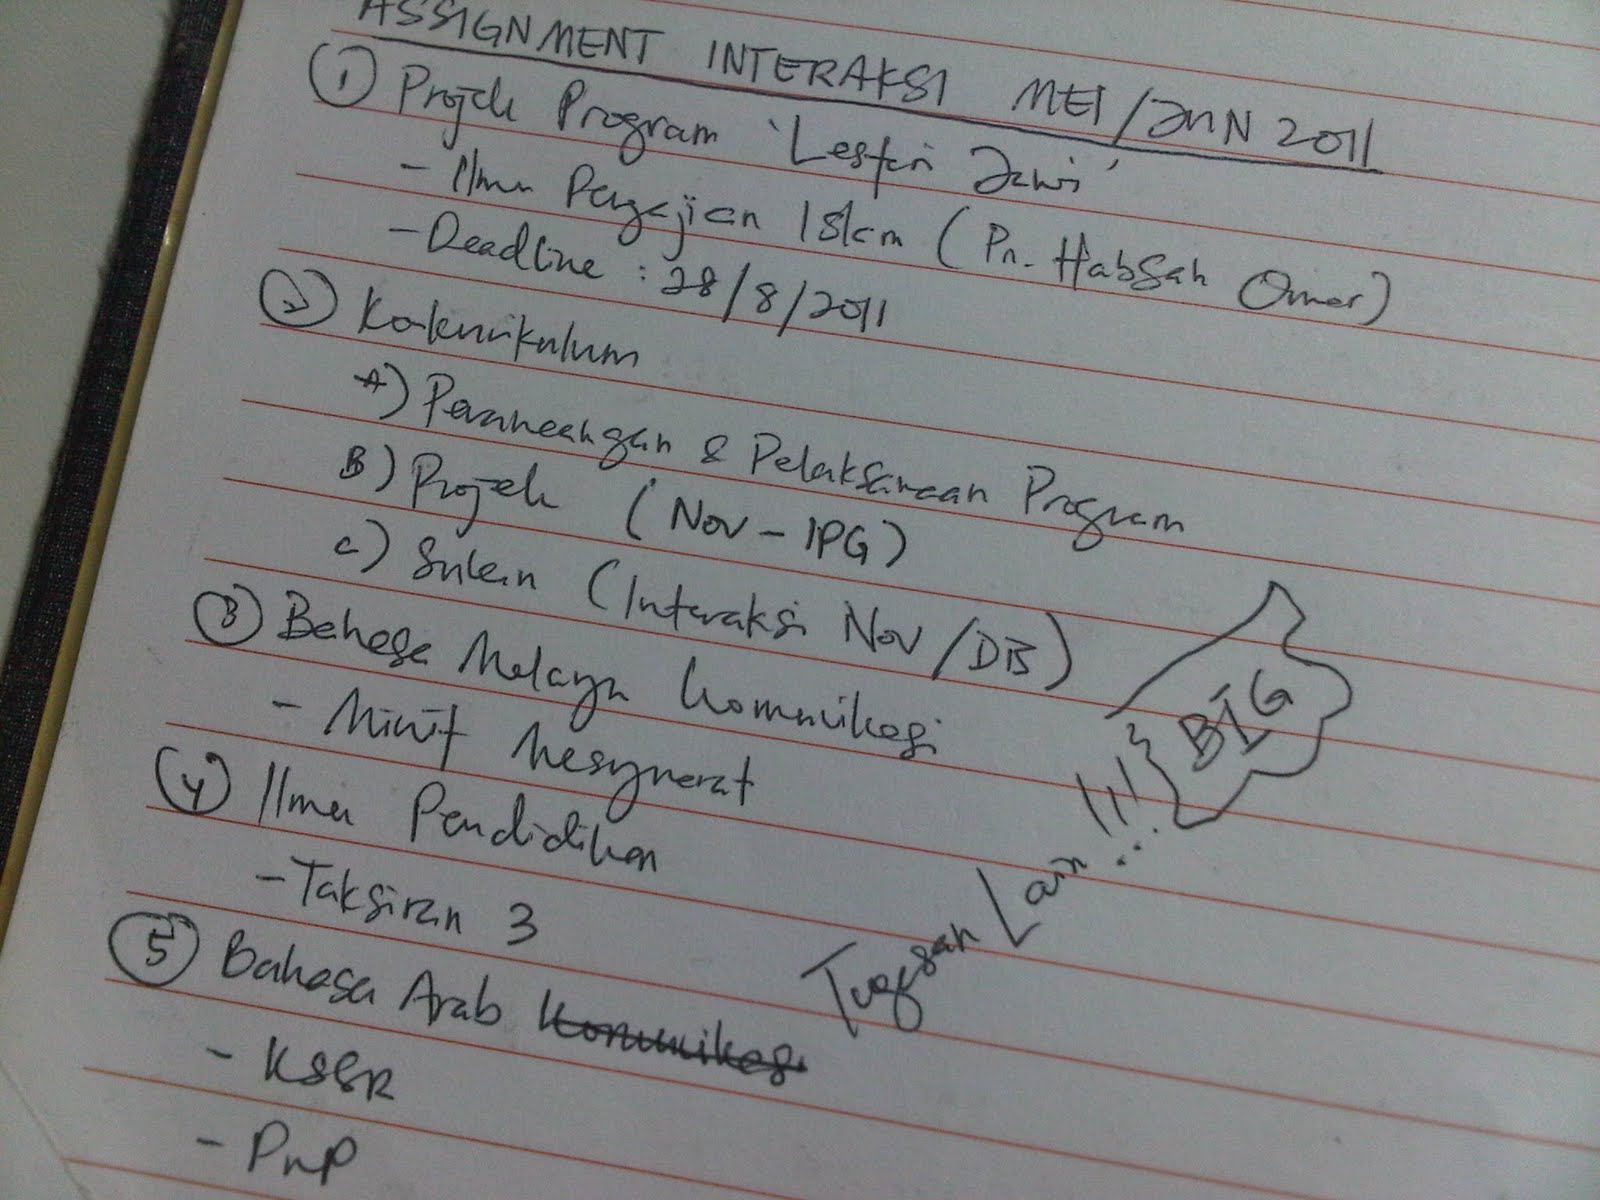 ASSIGNMENT INTERAKSI MEI/JUN 2011
① Projek Program 'Lestari Jawi'
- Ilmu Pengajian Islam (Pn. Habsah Omar)
- Deadline : 28/8/2011
② Kokurikulum
A) Perancangan & Pelaksanaan Program
B) Projek (Nov - IPG)
C) Sukan (Interaksi Nov/DIS)
③ Bahasa Melayu Komunikasi
- Minit Mesyuarat
④ Ilmu Pendidikan
- Taksiran 3
⑤ Bahasa Arab Komunikasi
- KSSR
- PnP
Tugasan Lain ... !!!
BIG